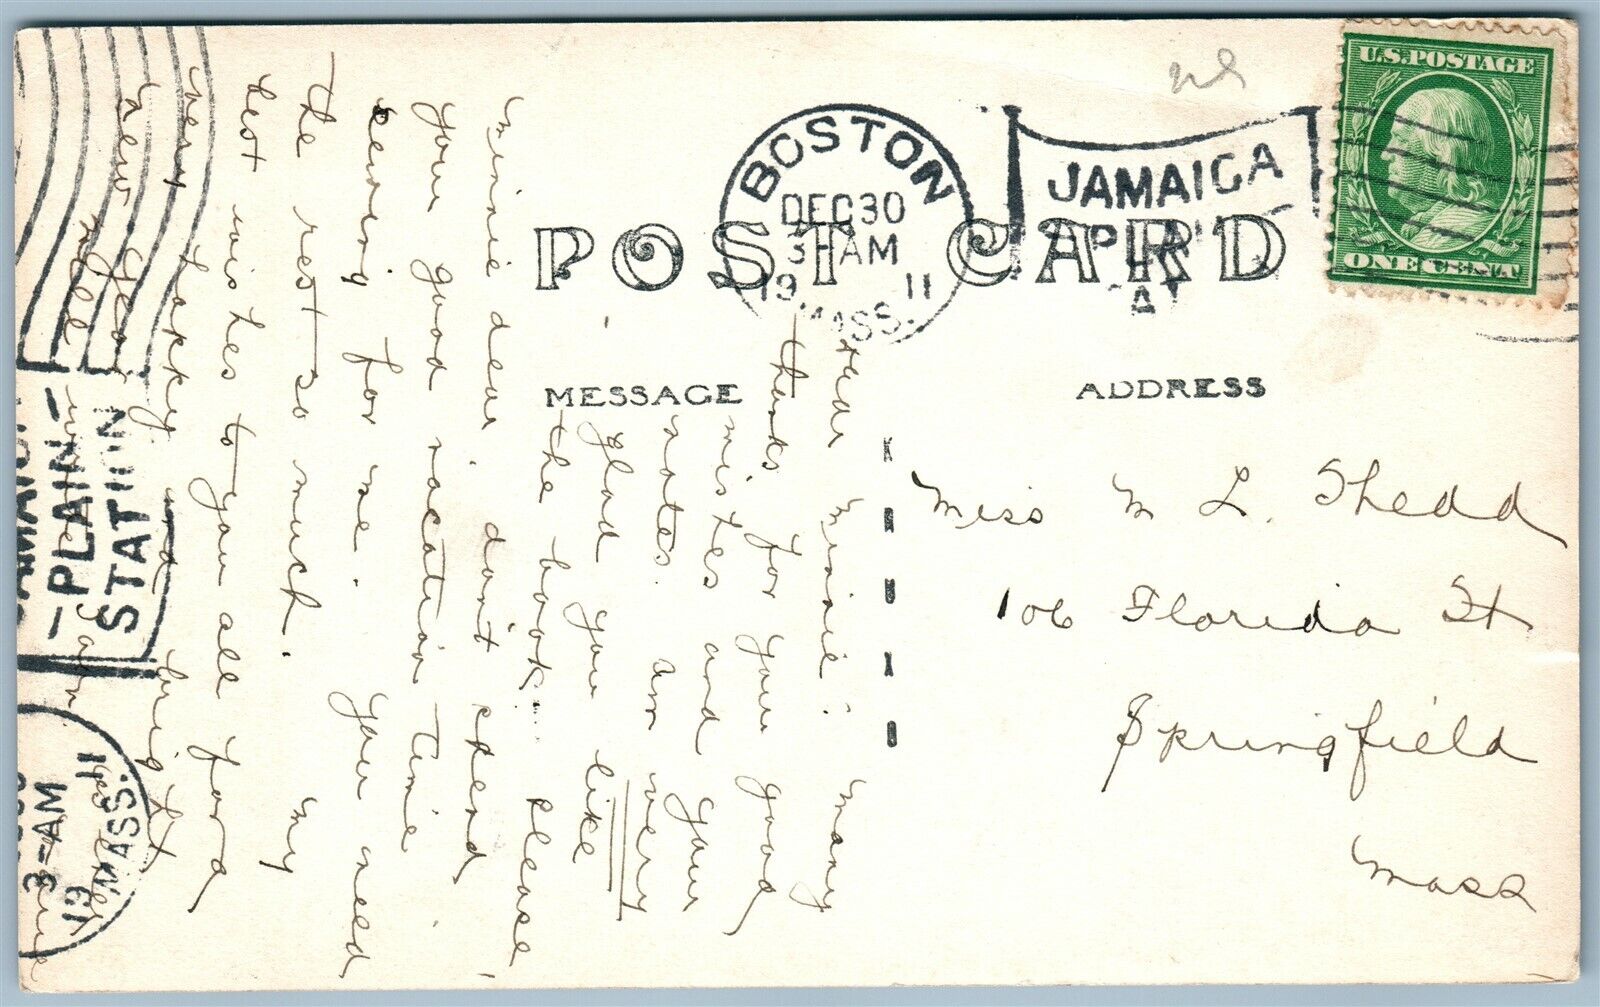 U.S. POSTAGE
ONE CENT
BOSTON
DEC 30
3-AM
19 11
MASS.
JAMAICA
PLAIN
POST CARD
MESSAGE
ADDRESS
Miss M L. Shedd
106 Florida St
Springfield
Mass
Dear Minnie: Many
thanks for your good
wishes and your
notes. am very
glad you like
the book. Please
Minnie dear, dont spend
your good vacation time
sewing for me. You need
the rest so much. My
best wishes to you all for a
very happy and bright
New Year
KRUXO
PLAIN
STATION
3-AM
19 11
MASS.